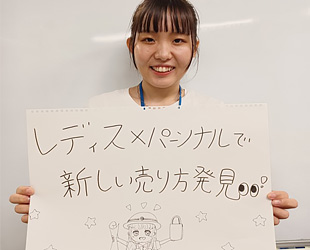 レディス×パーソナルで
新しい売り方発見👀!